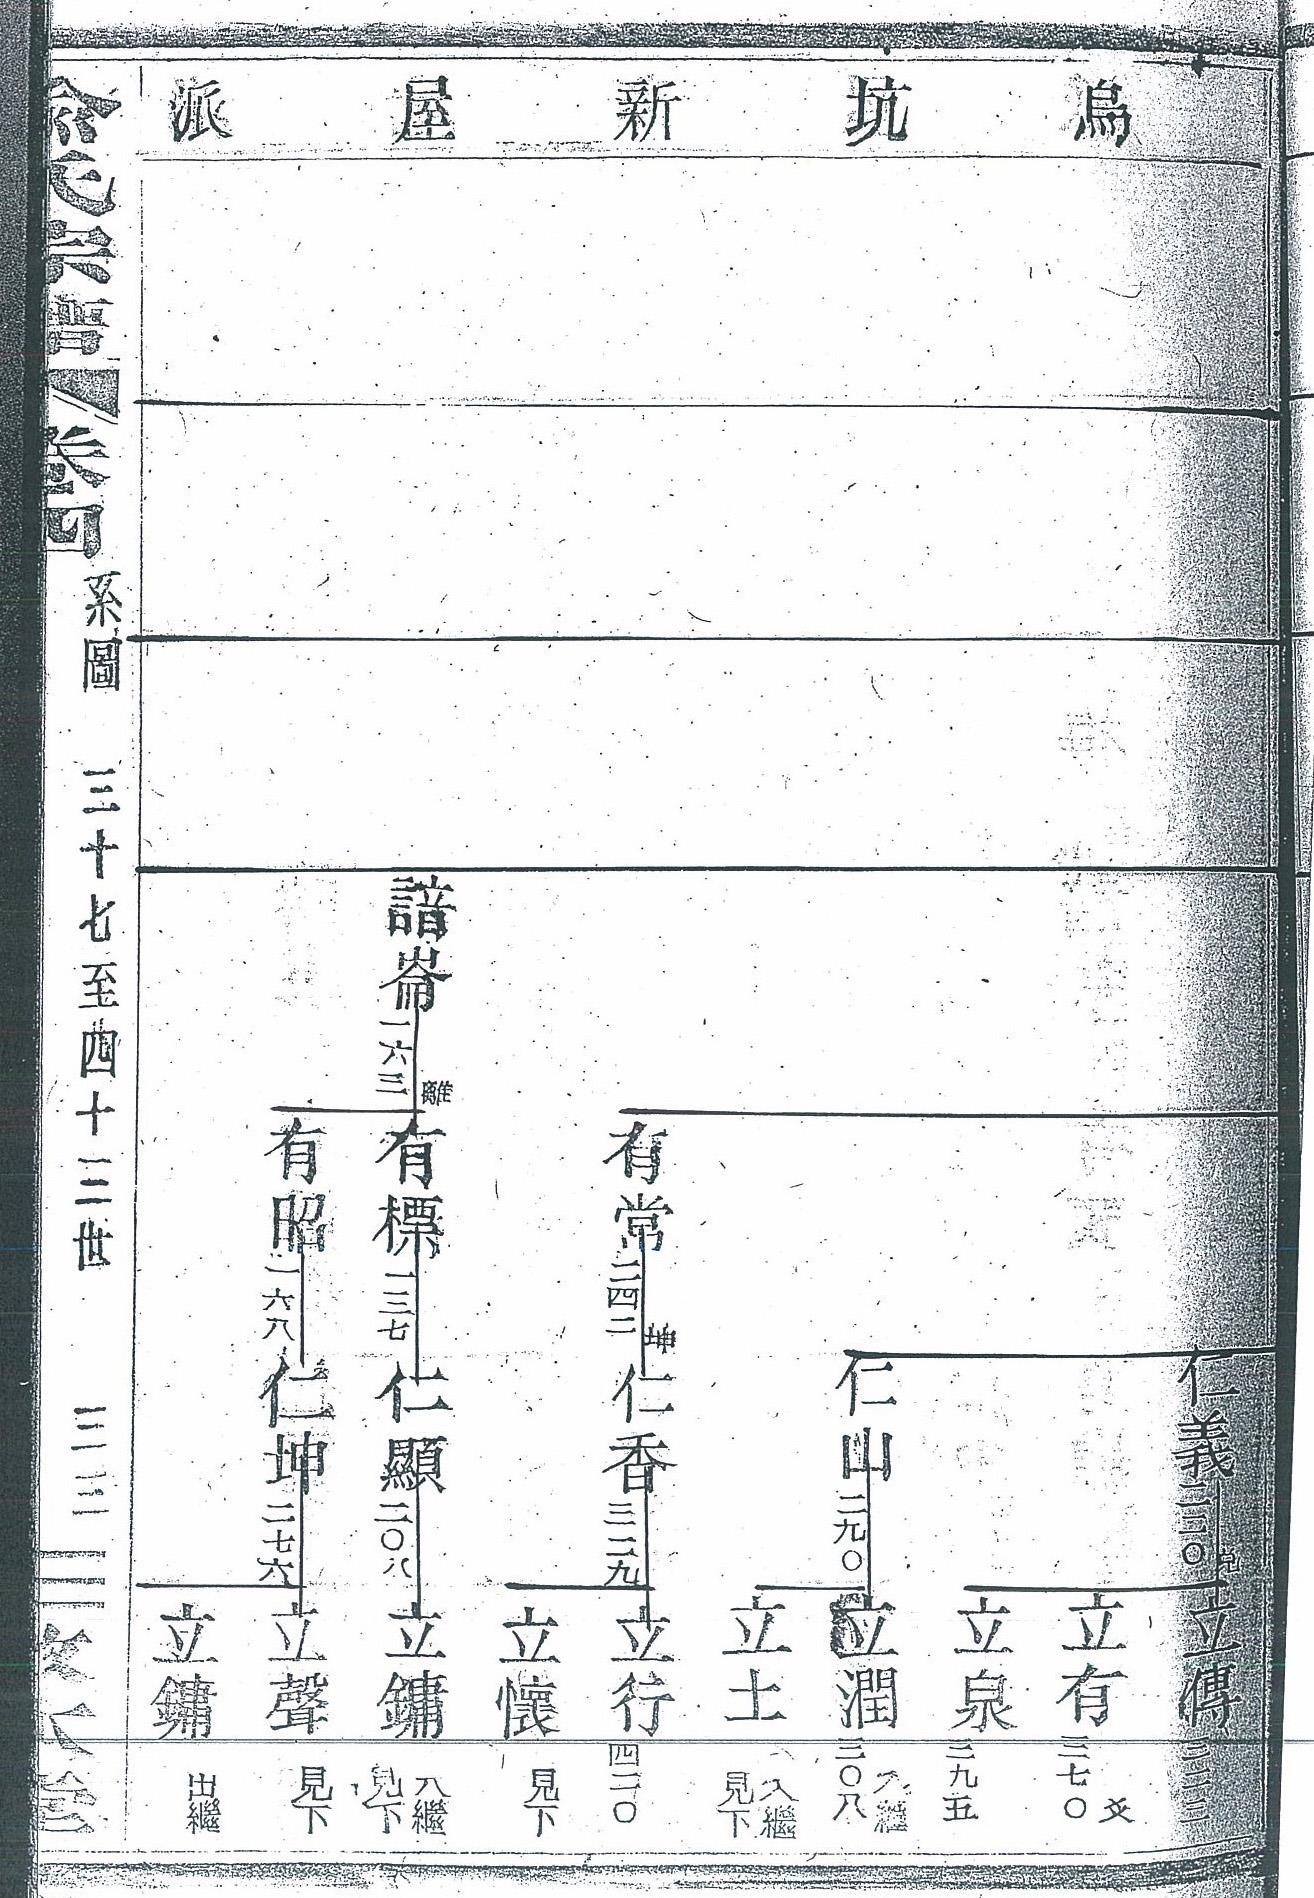 烏坑新屋派
仁義
立傳
立有 三七〇 爻
立泉 三九五
仁山 二九〇
立潤 三〇八 入繼
立土 入繼 見下
有常 二四二 坤
仁香 三二九
立行 四二〇
立懷 見下
諳崙 一六三 離
有標 二三七
仁顯 二〇八
立鏞 入繼 見下
有昭 二六八
仁坤 二七六
立聲 見下
立鏞 出繼
俞氏宗譜 卷四 系圖 三十七至四十二世